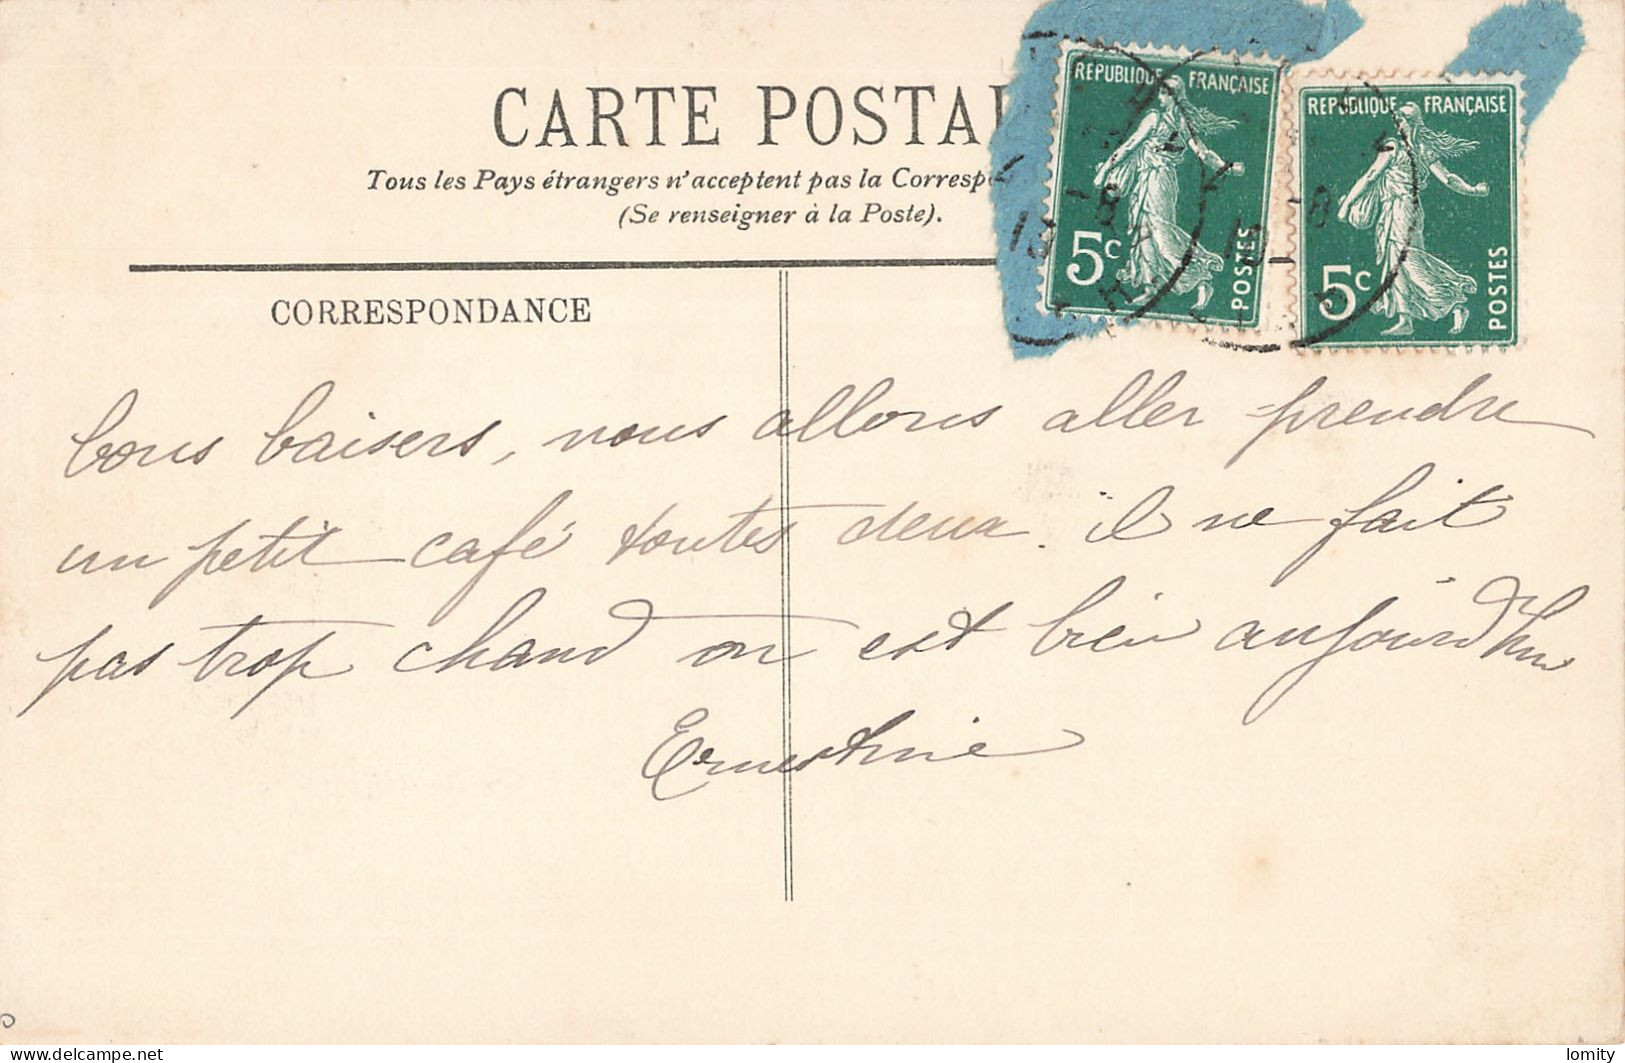 CARTE POSTAL
Tous les Pays étrangers n'acceptent pas la Corresp
(Se renseigner à la Poste).
RÉPUBLIQUE FRANÇAISE
5c
POSTES
RÉPUBLIQUE FRANÇAISE
5c
POSTES
13 -8
13 -8
CORRESPONDANCE
bons baisers, nous allons aller prendre
un petit café toutes deux. il ne fait
pas trop chaud on est bien aujourd'hui
Ernestine
delcampe.net
lomity